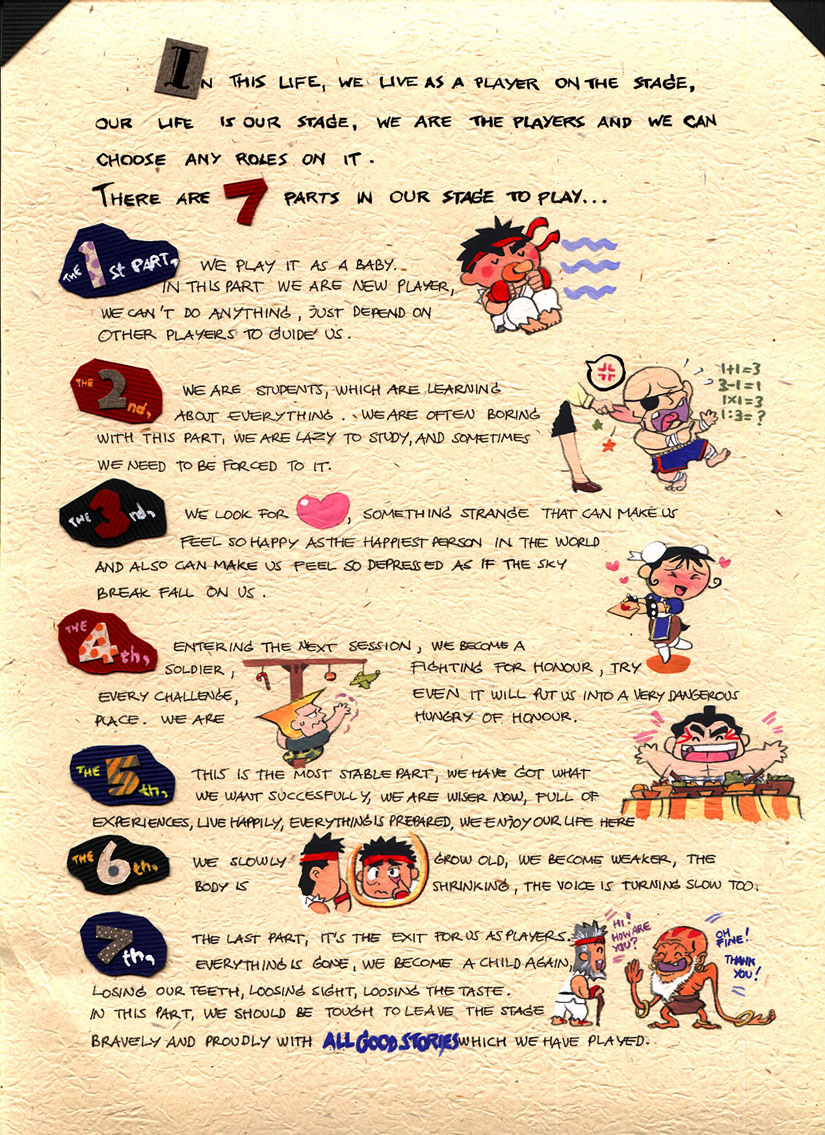 IN THIS LIFE, WE LIVE AS A PLAYER ON THE STAGE,
OUR LIFE IS OUR STAGE, WE ARE THE PLAYERS AND WE CAN
CHOOSE ANY ROLES ON IT.
THERE ARE 7 PARTS IN OUR STAGE TO PLAY...
THE 1st PART, WE PLAY IT AS A BABY.
IN THIS PART WE ARE NEW PLAYER,
WE CAN'T DO ANYTHING, JUST DEPEND ON
OTHER PLAYERS TO GUIDE US.
THE 2nd, WE ARE STUDENTS, WHICH ARE LEARNING
ABOUT EVERYTHING.. WE ARE OFTEN BORING
WITH THIS PART, WE ARE LAZY TO STUDY, AND SOMETIMES
WE NEED TO BE FORCED TO IT.
1+1=3
3-1=1
1x1=3
1:3=?
THE 3nd, WE LOOK FOR , SOMETHING STRANGE THAT CAN MAKE US
FEEL SO HAPPY AS THE HAPPIEST PERSON IN THE WORLD
AND ALSO CAN MAKE US FEEL SO DEPRESSED AS IF THE SKY
BREAK FALL ON US.
THE 4th, ENTERING THE NEXT SESSION, WE BECOME A
SOLDIER, FIGHTING FOR HONOUR, TRY
EVERY CHALLENGE, EVEN IT WILL PUT US INTO A VERY DANGEROUS
PLACE. WE ARE HUNGRY OF HONOUR.
THE 5th, THIS IS THE MOST STABLE PART, WE HAVE GOT WHAT
WE WANT SUCCESFULLY, WE ARE WISER NOW, FULL OF
EXPERIENCES, LIVE HAPPILY, EVERYTHING IS PREPARED, WE ENJOY OUR LIFE HERE
THE 6th, WE SLOWLY GROW OLD, WE BECOME WEAKER, THE
BODY IS SHRINKING, THE VOICE IS TURNING SLOW TOO.
THE 7th, THE LAST PART, IT'S THE EXIT FOR US AS PLAYERS.
EVERYTHING IS GONE, WE BECOME A CHILD AGAIN,
LOSING OUR TEETH, LOOSING SIGHT, LOOSING THE TASTE.
IN THIS PART, WE SHOULD BE TOUGH TO LEAVE THE STAGE
BRAVELY AND PROUDLY WITH ALL GOOD STORIES WHICH WE HAVE PLAYED.
HI!
HOW ARE
YOU?
OH
FINE!
THANK
YOU!